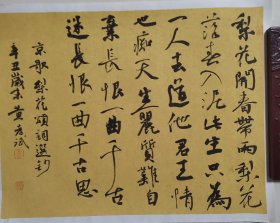 梨花開春帶雨梨花
落春入泥此生只為
一人去道他君王情
也痴天生麗質難自
棄長恨一曲千古
迷長恨一曲千古思
京歌梨花頌詞選
辛丑歲末黃